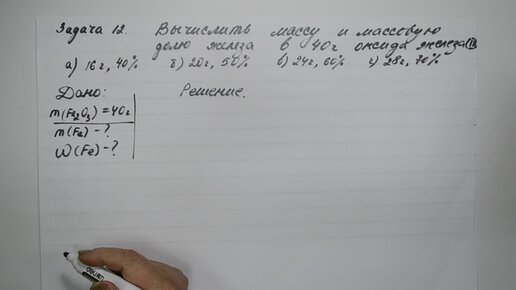 Задача 12. Вычислить массу и массовую
долю железа в 40г оксида железа(III)
а) 16г, 40% б) 20г, 50% в) 24г, 60% г) 28г, 70%
Дано: Решение.
m(Fe₂O₃) = 40г
m(Fe) - ?
ω(Fe) - ?